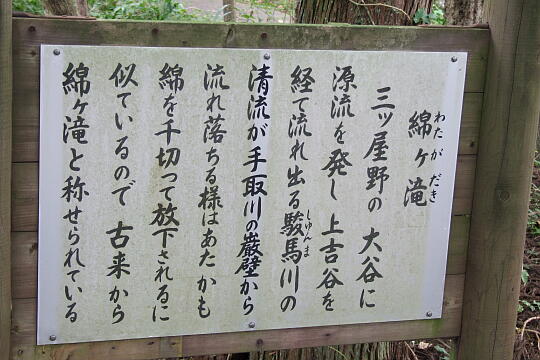 綿ヶ滝
わた が だき
三ッ屋野の 大谷に
源流を発し 上吉谷を
経て流れ出る駿馬川の
しゅんま
清流が 手取川の巌壁から
流れ落ちる様はあたかも
綿を千切って放下されるに
似ているので 古来から
綿ヶ滝と称せられている